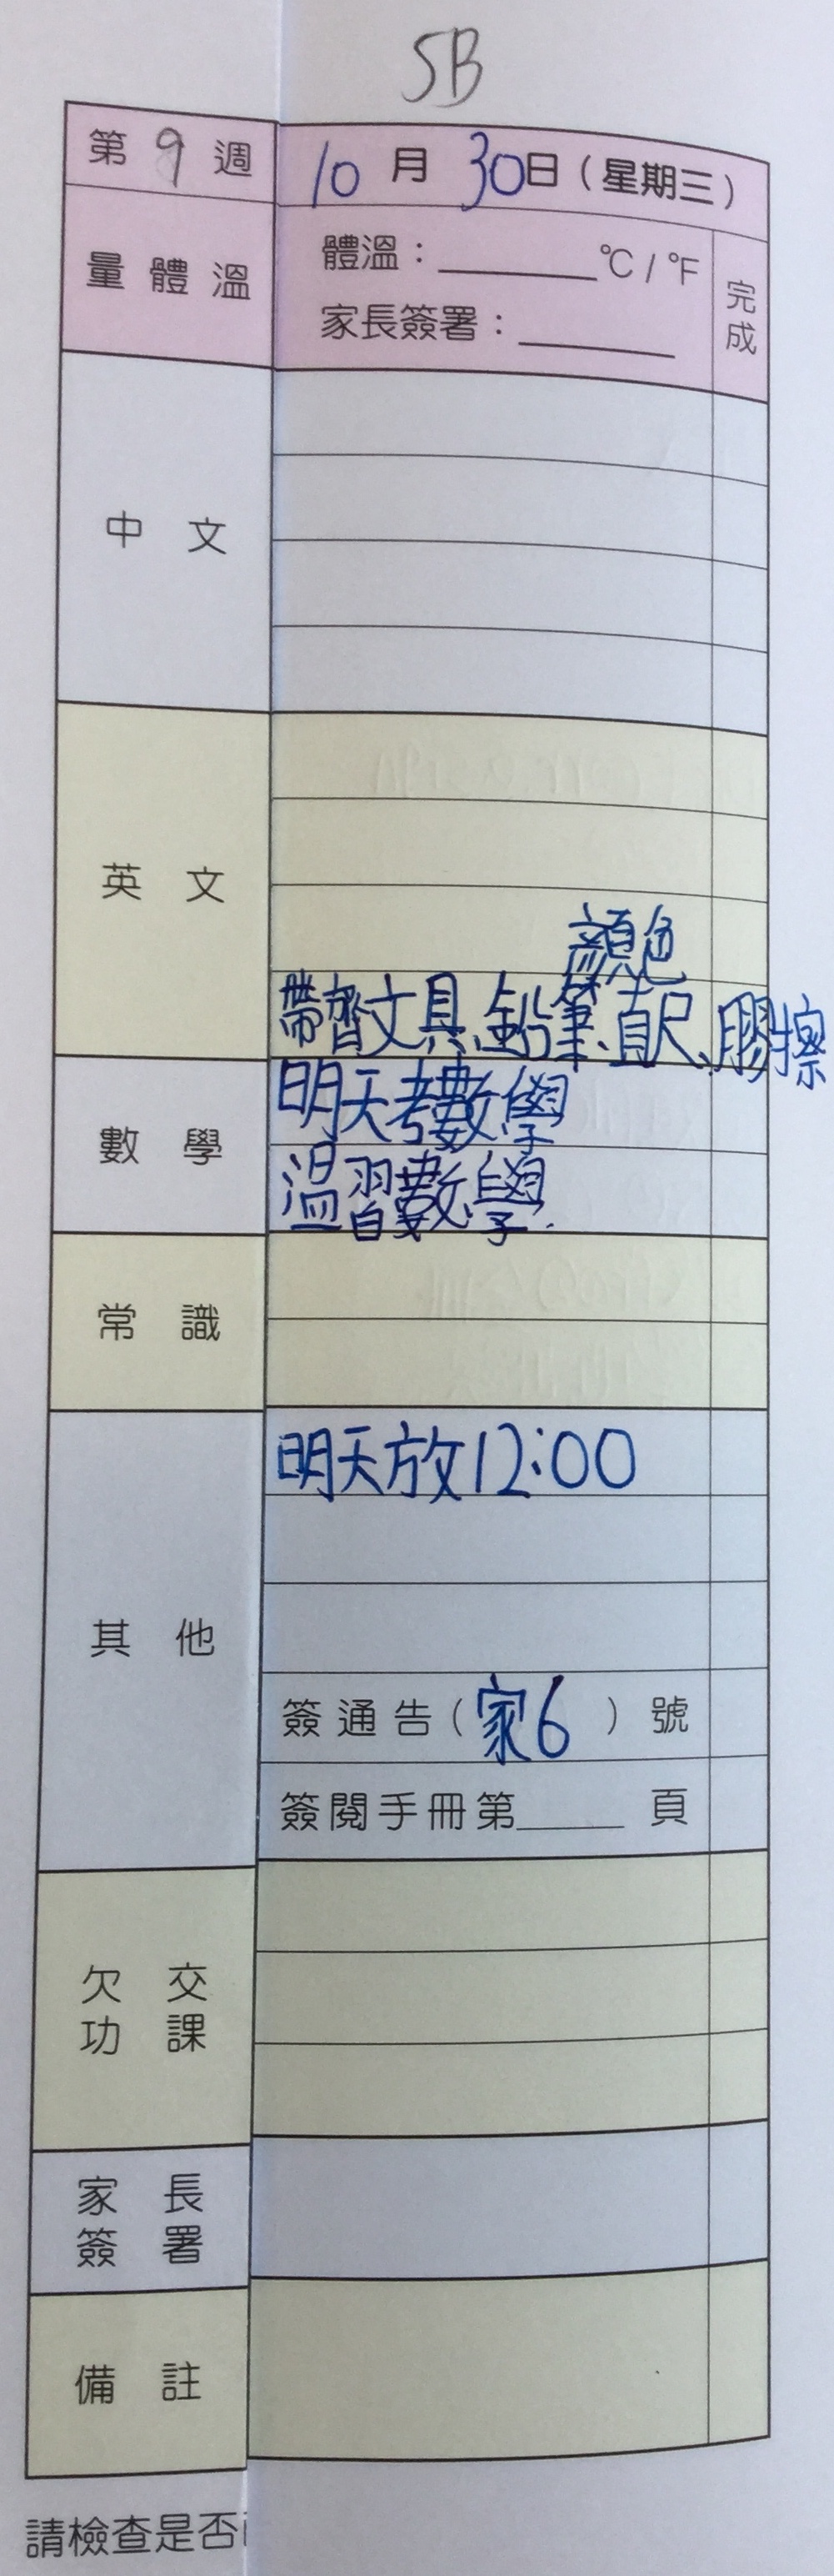 5B
第 9 週 10 月 30 日（星期三）
量體溫 體溫：______℃/℉ 完成
家長簽署：______
中文
英文
顏色
帶齊文具、鉛筆、直尺、膠擦
數學 明天考數學
溫習數學.
常識
其他 明天放12:00
簽通告（家6）號
簽閱手冊第____頁
欠交
功課
家長
簽署
備註
請檢查是否